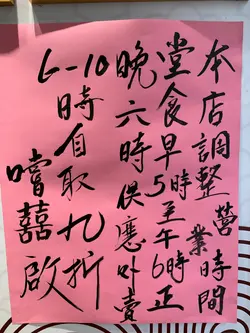 本店調整營業時間
堂食早5時至午6時正
晚六時供應外賣
6-10時自取九折
嚐囍啟